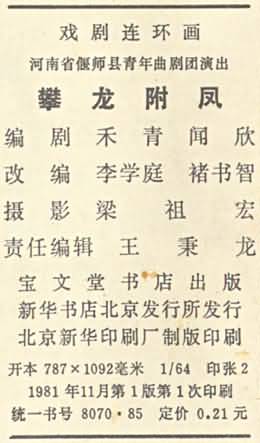 戏剧连环画
河南省偃师县青年曲剧团演出
攀龙附凤
编剧 禾青 闻欣
改编 李学庭 褚书智
摄影 梁祖宏
责任编辑 王秉龙
宝文堂书店出版
新华书店北京发行所发行
北京新华印刷厂制版印刷
开本 787×1092毫米 1/64 印张2
1981年11月第1版第1次印刷
统一书号 8070·85 定价 0.21元